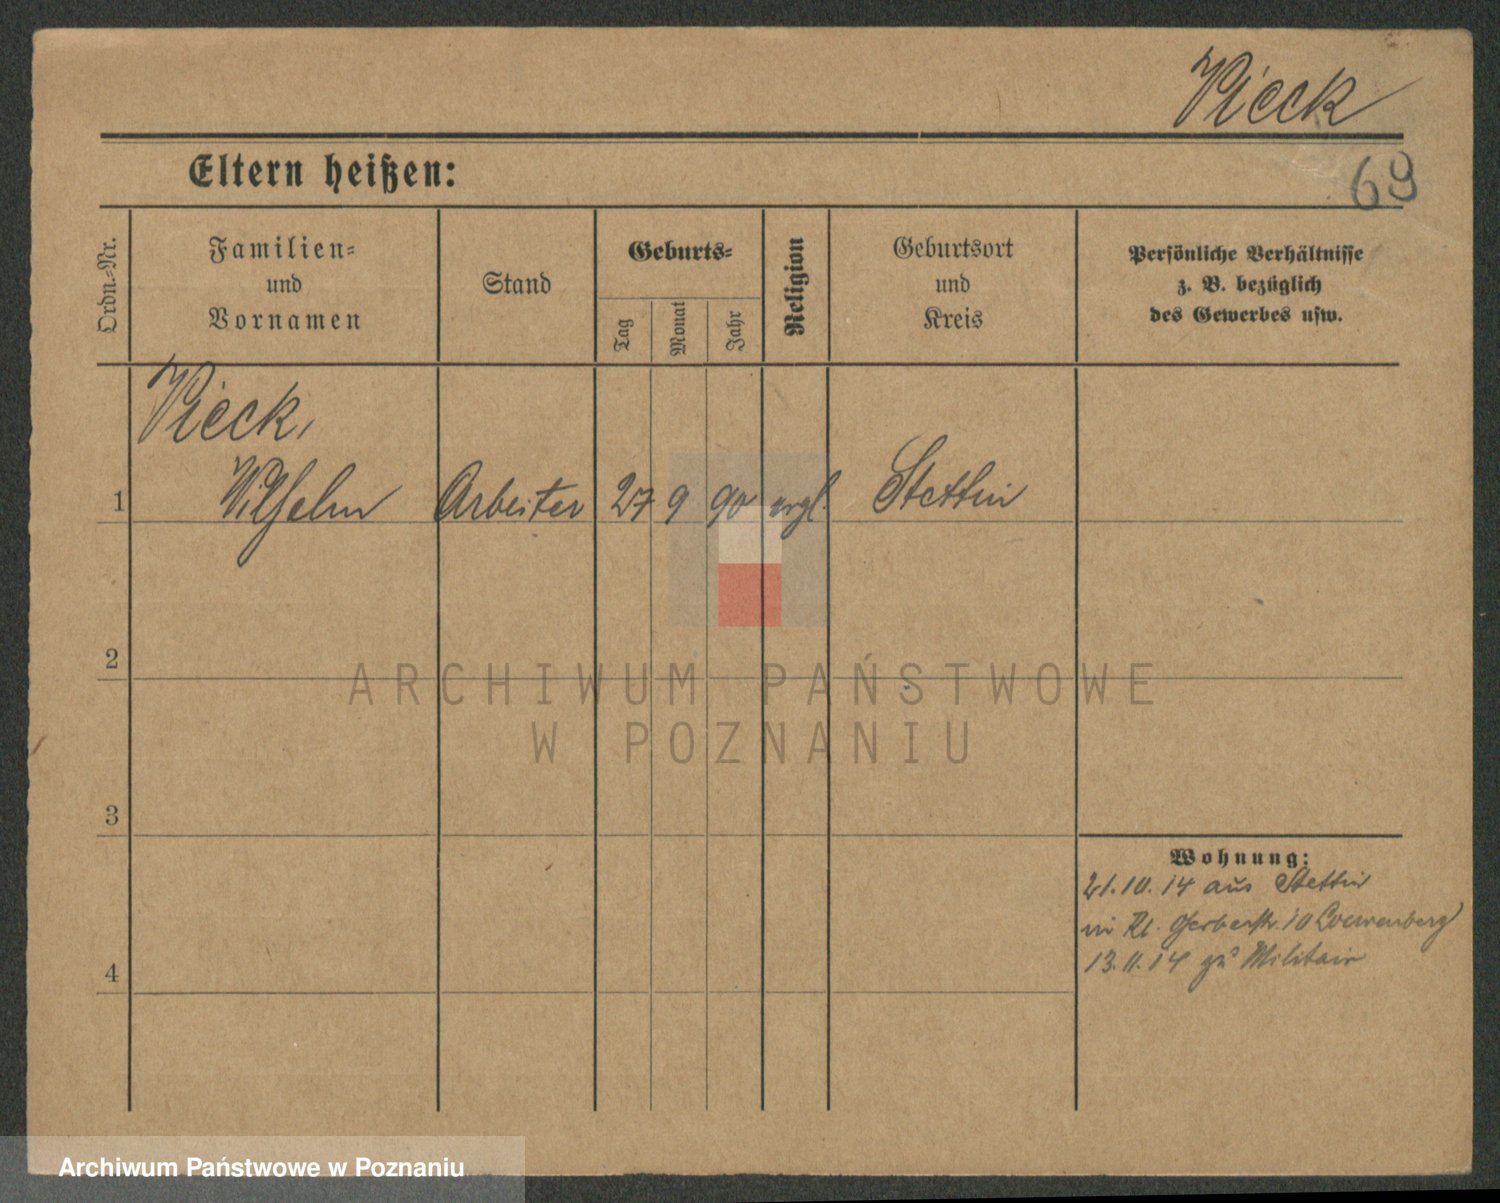 Pieck
69
Eltern heißen:
Ordn.-Nr.
Familien-
und
Vornamen
Stand
Geburts-
Tag
Monat
Jahr
Religion
Geburtsort
und
Kreis
Persönliche Verhältnisse
z. B. bezüglich
des Gewerbes usw.
Pieck,
1 Wilhelm Arbeiter 27 9 90 evgl. Stettin
2
ARCHIWUM PAŃSTWOWE
W POZNANIU
3
Wohnung:
21.10.14 aus Stettin
in Kl. Gerberstr. 10 Loewenberg
13.11.14 zu Militair
4
Archiwum Państwowe w Poznaniu